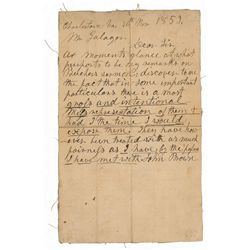 Charlestown Va 26th Nov 1859.
Mr Galagor
Dear Sir
At moments glance at what
purports to be my remarks on
Beechers sermon, discovers to me
the fact that in some important
particulars there is a most
gross and intentional
misrepresentation of them &
had I the time I would
expose them. They have how
ever been treated with as much
fairness as I have, by the papers
I have met with John Brown